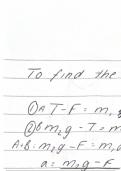 To find the
① A T-F = m₁
② B m₂g - T = m
A+B: m₂g - F = m₁
a = m₂g - F